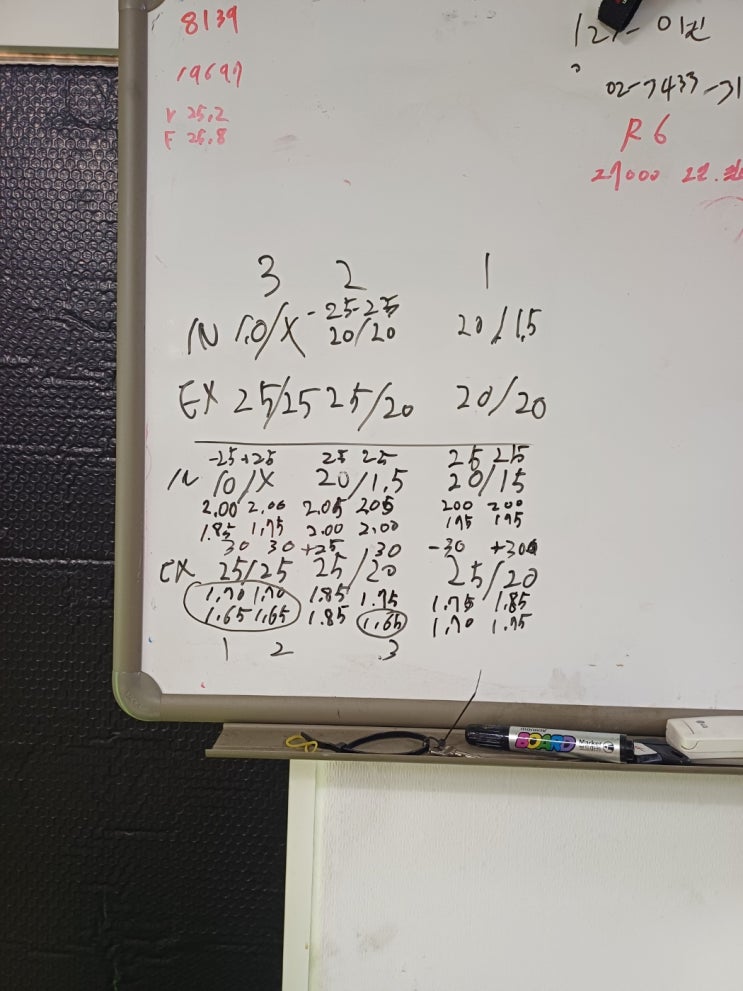 8139
19697
V 25.2
F 25.8
02-7433-31
R6
27000
3 2 1
-25-25
IN 1.0/X 20/20 20/1.5
EX 25/25 25/20 20/20
-25+25 25 25 25 25
IN 10/X 20/1.5 20/15
2.00 2.00 2.05 205 200 200
1.85 1.75 2.00 2.00 195 195
30 30 +25 /30 -30 +30
EX 25/25 25/20 25/20
1.70 1.70 1.85 1.75 1.75 1.85
1.65 1.65 1.85 1.65 1.70 1.75
1 2 3
BOARD Marker